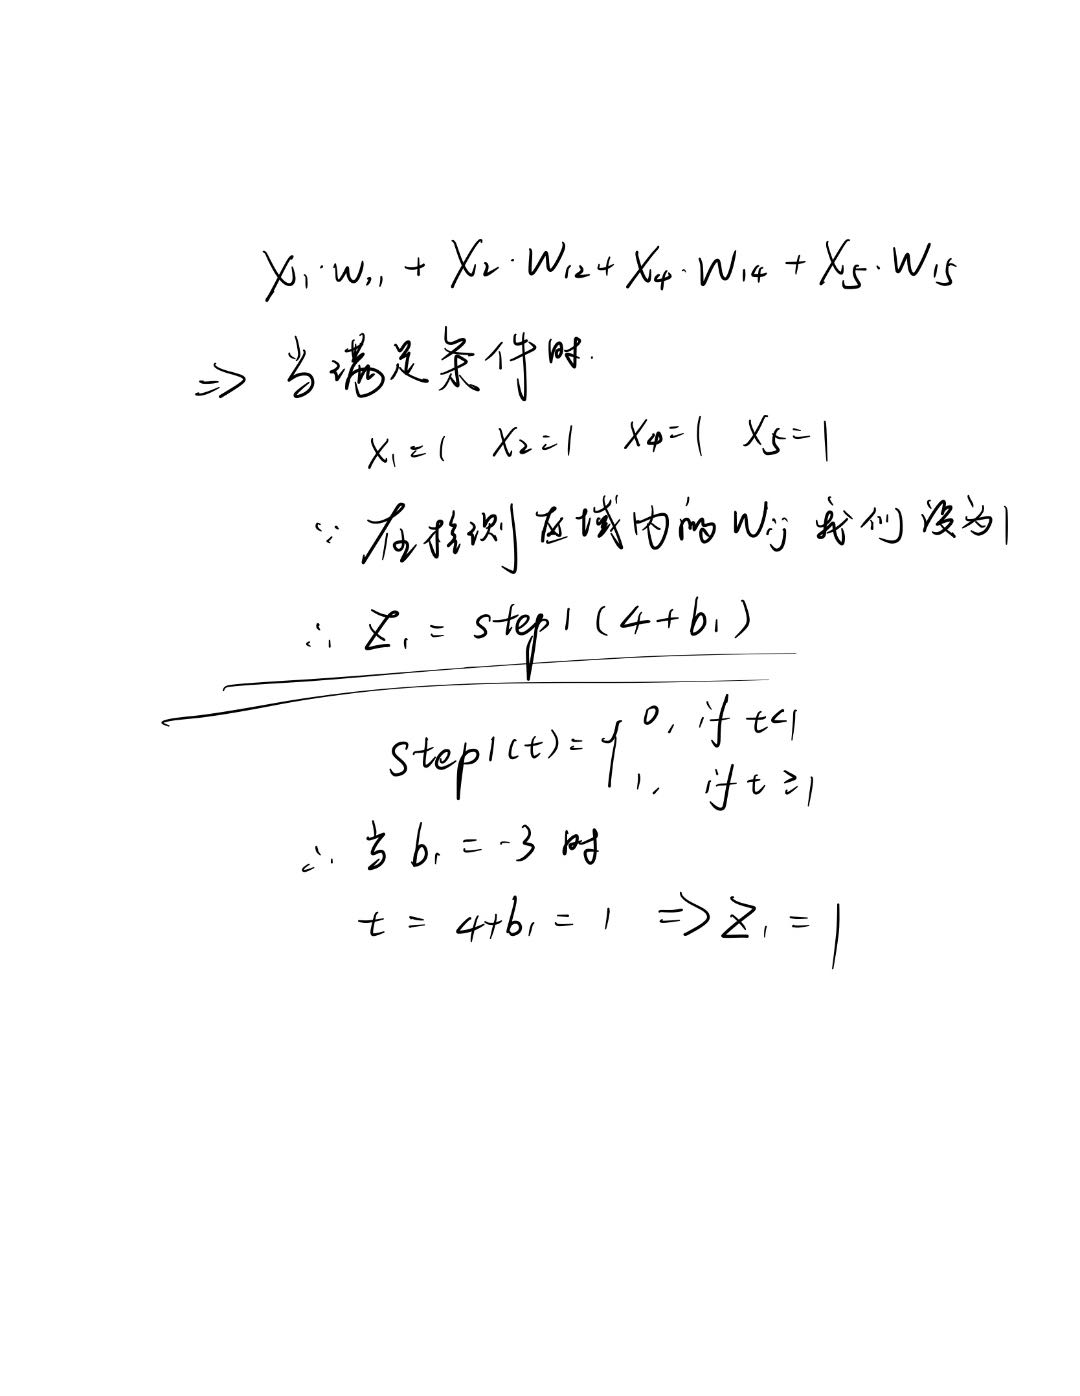 X₁·W₁₁ + X₂·W₁₂ + X₄·W₁₄ + X₅·W₁₅
⇒ 当满足条件时.
X₁=1 X₂=1 X₄=1 X₅=1
∵ 在检测区域内的 Wij 我们设为1
∴ Z₁ = step1(4+b₁)
step1(t)={0, if t<1
1, if t≥1
∴ 当 b₁ = -3 时
t = 4+b₁ = 1 ⇒ Z₁ = 1